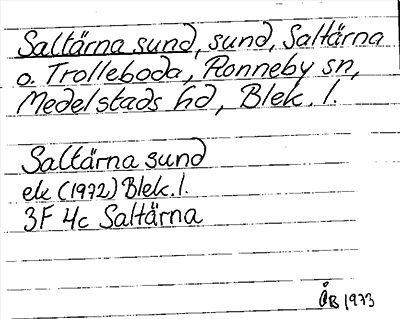 Saltärna sund, sund, Saltärna
o. Trolleboda, Ronneby sn,
Medelstads hd, Blek. l.
Saltärna sund
ek (1972) Blek. l.
3F 4c Saltärna
ÅB 1973